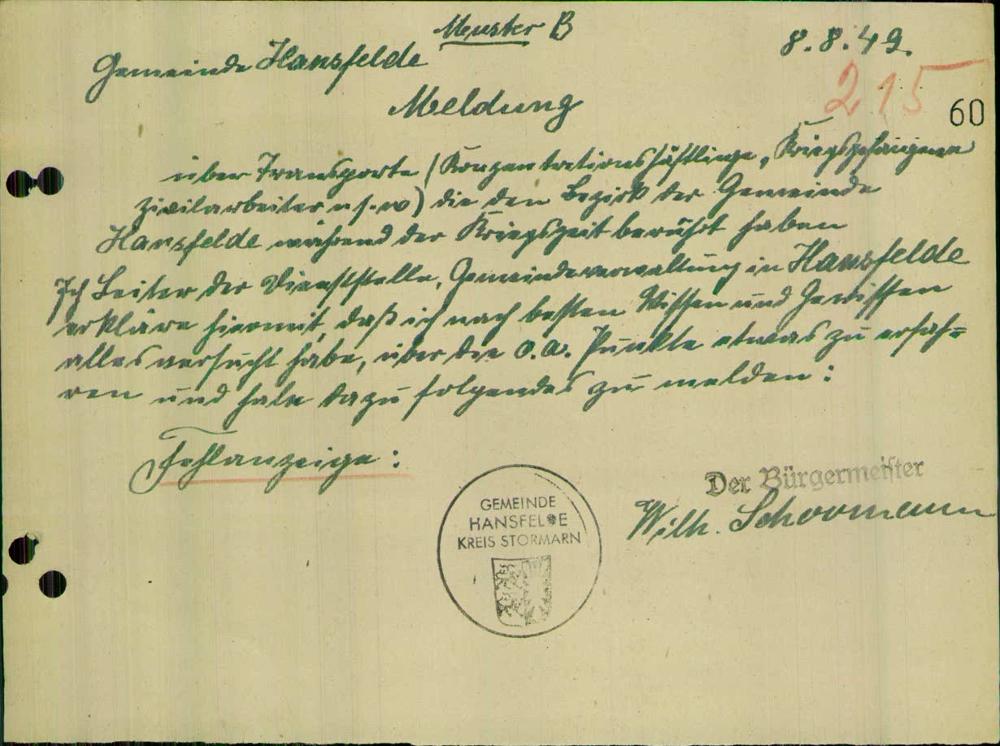 Muster B
8.8.49.
Gemeinde Hansfelde
215
60
Meldung
über Transporte (Konzentrationshäftlinge, Kriegsgefangenen
Zivilarbeiter u.s.w) die den Bezirk der Gemeinde
Hansfelde während der Kriegszeit berührt haben
Ich Leiter der Dienststelle, Gemeindeverwaltung in Hansfelde
erkläre hiermit, daß ich nach besten Wissen und Gewissen
alles versucht habe, über die o.a. Punkte etwas zu erfah=
ren und habe dazu folgendes zu melden:
Fehlanzeige:
Der Bürgermeister
Wilh. Schoomann
GEMEINDE
HANSFELDE
KREIS STORMARN